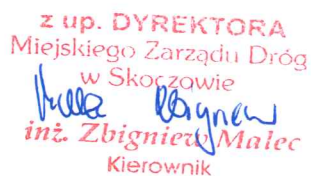 z up. DYREKTORA
Miejskiego Zarządu Dróg
w Skoczowie
inż. Zbigniew Malec
Kierownik